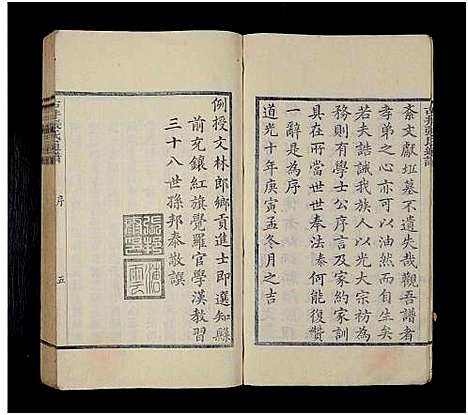 紊文獻坵墓不遺失哉觀吾譜者
孝弟之心亦可以油然而自生矣
若夫誥誡我族人以光大宗祊為
務則有學士公序言及家約家訓
在所當世世奉法泰何能復贊
一辭是為序
道光十年庚寅孟冬月之吉
例授文林郎鄉貢進士即選知縣
前充鑲紅旗覺羅官學漢教習
三十八世孫邦泰敬譔
張氏通譜
序
五